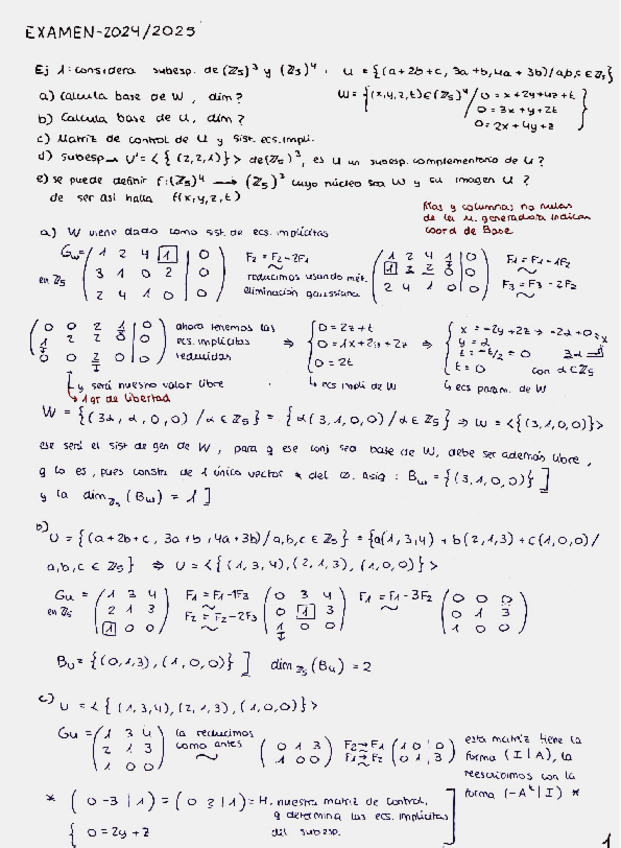 EXAMEN-2024/2025
Ej 1: considera subesp. de (ℤ₅)³ y (ℤ₅)⁴. U = {(a+2b+c, 3a+b, 4a+3b)/a,b,c ∈ ℤ₅}
a) Calcula base de W, dim?
W = {(x,y,z,t) ∈ (ℤ₅)⁴ / 0 = x+2y+4z+t
0 = 3x+y+2t
0 = 2x+4y+z }
b) Calcula base de U, dim?
c) Matriz de control de U y Sist. ecs. impli.
d) subesp → U' = <{(2,2,1)}> de (ℤ₅)³, es U un subesp. complementario de U?
e) se puede definir f: (ℤ₅)⁴ → (ℤ₅)³ cuyo núcleo sea W y su imagen U?
de ser así halla f(x,y,z,t)
filas y columnas no nulas
de la m. generadora indican
coord de Base
a) W viene dado como sist. de ecs. implícitas
Gw = ( 1 2 4 1 | 0
3 1 0 2 | 0
2 4 1 0 | 0 )
en ℤ₅
F2 = F2 - 2F1
reducimos usando mét.
eliminación gaussiana
( 1 2 4 1 | 0
1 2 2 0 | 0
2 4 1 0 | 0 )
F1 = F1 - 1F2
F3 = F3 - 2F2
( 0 0 2 1 | 0
1 2 2 0 | 0
0 0 2 0 | 0 )
ahora tenemos las
ecs. implícitas
reducidas
⇒ { 0 = 2z+t
0 = 1x+2y+2z
0 = 2t
↳ ecs impli de W
⇒ { x = -2y+2z → -2α+0 = x
y = α 3α
z = -t/2 = 0
t = 0 con α ∈ ℤ₅
↳ ecs param. de W
↳ y será nuestro valor libre
↳ 1 gr de libertad
W = {(3α, α, 0, 0) / α ∈ ℤ₅} = {α(3,1,0,0) / α ∈ ℤ₅} ⇒ W = <{(3,1,0,0)}>
ese será el sist de gen de W, para q ese conj sea base de W, debe ser además libre,
q lo es, pues consta de 1 único vector ≠ del 0. Asig: Bw = {(3,1,0,0)} ]
y la dim ℤ₅ (Bw) = 1 ]
b) U = {(a+2b+c, 3a+b, 4a+3b)/a,b,c ∈ ℤ₅} = {a(1,3,4) + b(2,1,3) + c(1,0,0) /
a,b,c ∈ ℤ₅} ⇒ U = <{(1,3,4), (2,1,3), (1,0,0)}>
Gu = ( 1 3 4
2 1 3
1 0 0 )
en ℤ₅
F1 = F1 - 1F3
F2 = F2 - 2F3
( 0 3 4
0 1 3
1 0 0 )
F1 = F1 - 3F2
( 0 0 0
0 1 3
1 0 0 )
Bu = {(0,1,3), (1,0,0)} ] dim ℤ₅ (Bu) = 2
c) U = <{(1,3,4), (2,1,3), (1,0,0)}>
Gu = ( 1 3 4
2 1 3
1 0 0 )
la reducimos
como antes
( 0 1 3
1 0 0 )
F2 → F1
F1 → F2
( 1 0 | 0
0 1 | 3 )
esta matriz tiene la
forma (I|A), la
reescribimos con la
forma (-Aᵗ|I) *
* ( 0 -3 | 1) = (0 2 | 1) = H, nuestra matriz de control,
q determina las ecs. implícitas
del subesp.
{ 0 = 2y+z
1